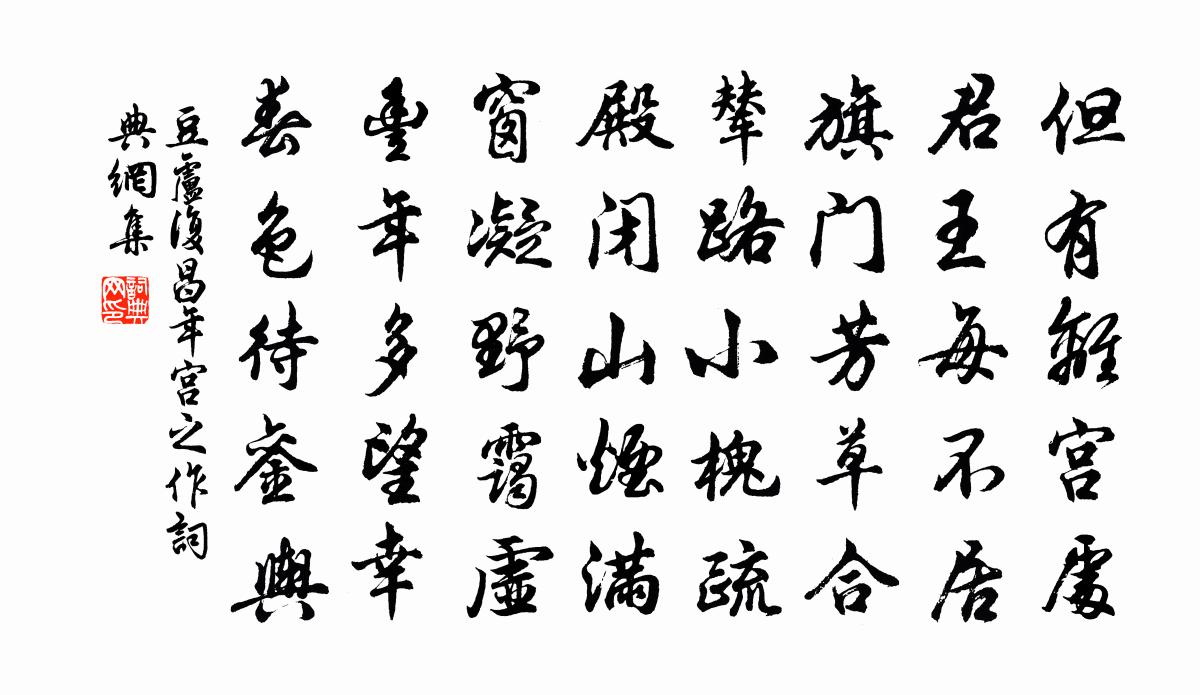 但有離宮處
君王每不居
旗门芳草合
輦路小槐疏
殿闭山煙满
窗凝野靄虛
豊年多望幸
春色待鑾輿
豆盧復昌年宮之作詞
典網集
詞典
网印